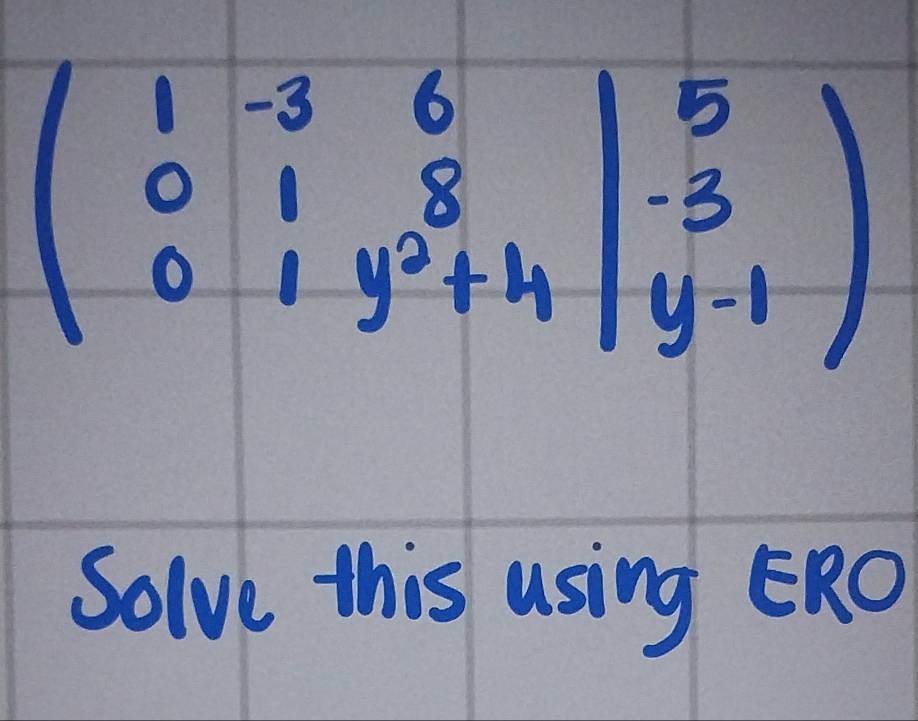 1 -3 6 | 5
0 1 8 | -3
0 1 y²+4 | y-1
Solve this using ERO